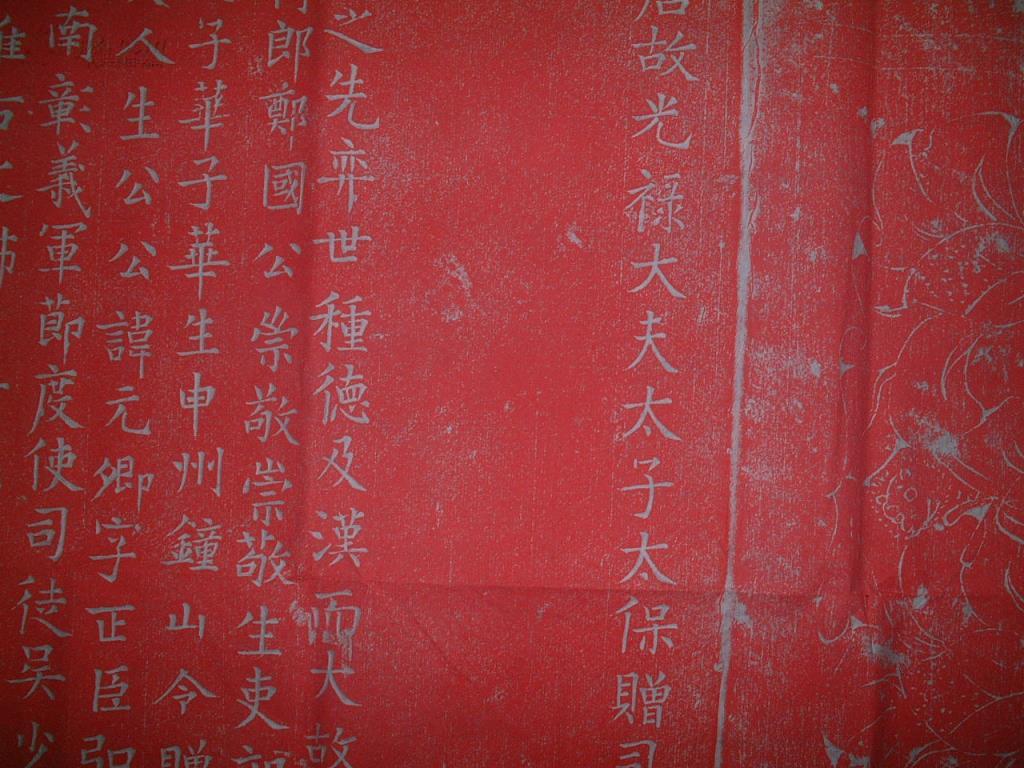 故光禄大夫太子太保贈司
之先弈世種德及漢而大故
郎鄭國公崇敬崇敬生吏部
子華子華生申州鐘山令贈
人生公公諱元卿字正臣
南彰義軍節度使司徒吴少